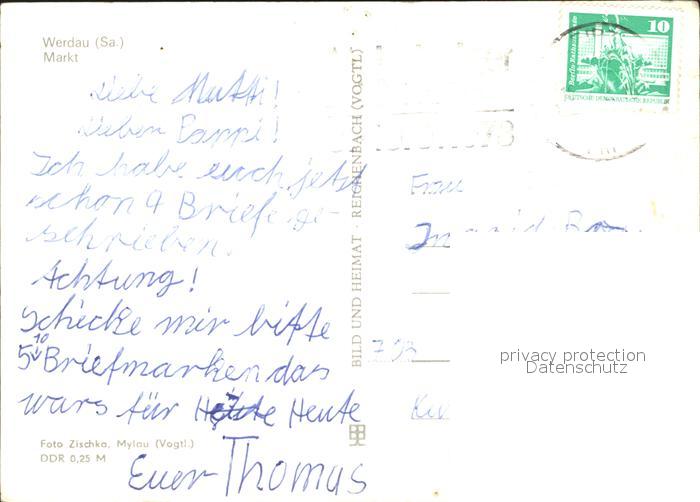 Werdau (Sa.)
Markt
Liebe Mutti!
Lieber Pappi!
Ich habe euch jetzt
schon 9 Briefe ge-
schrieben.
Achtung!
Schicke mir bitte
5 10 Briefmarken das
wars für Heute
Euer Thomas
Foto Zischka, Mylau (Vogtl.)
DDR 0,25 M
BILD UND HEIMAT · REICHENBACH (VOGTL)
10
Berlin, Rathausstraße
DEUTSCHE DEMOKRATISCHE REPUBLIK
Frau
privacy protection
Datenschutz